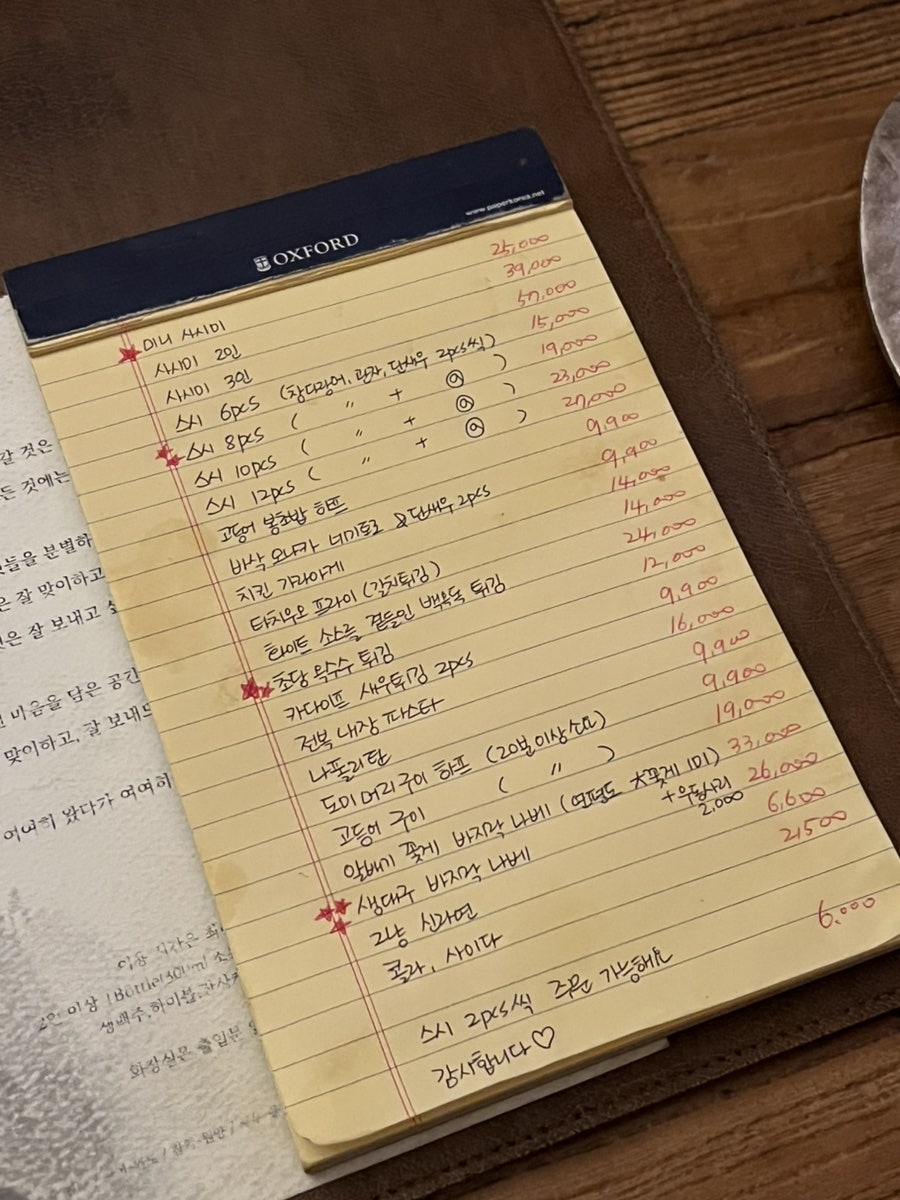 OXFORD
www.paperkorea.net
미니 사시미 25,000
사시미 2인 39,000
사시미 3인 57,000
스시 6pcs (참다랑어, 관자, 단새우 2pcs씩) 15,000
스시 8pcs ( 〃 + @ ) 19,000
스시 10pcs ( 〃 + @ ) 23,000
스시 12pcs ( 〃 + @ ) 27,000
고등어 봉초밥 하프 9,900
바삭 모나카 네기토로 &단새우 2pcs 9,900
치킨 가라아게 14,000
타치우오 프라이 (갈치튀김) 14,000
화이트 소스를 곁들인 백옥돔 튀김 24,000
초당 옥수수 튀김 12,000
카다이프 새우튀김 2pcs 9,900
전복 내장 파스타 16,000
나폴리탄 9,900
도미머리구이 하프 (20분이상소요) 9,900
고등어 구이 ( 〃 ) 19,000
알배기 꽃게 바지락 나베 (연평도 大꽃게 1미) 33,000
+우동사리
2,000
생대구 바지락 나베 26,000
그냥 신라면 6,600
콜라, 사이다 2,500
스시 2pcs씩 주문 가능해요 6,000
감사합니다♡
갈 것은
든 것에는
들을 분별하
은 잘 맞이하고
것은 잘 보내고
마음을 담은 공간
맞이하고, 잘 보내
2인 이상 1Bottle
화장실문 출입문